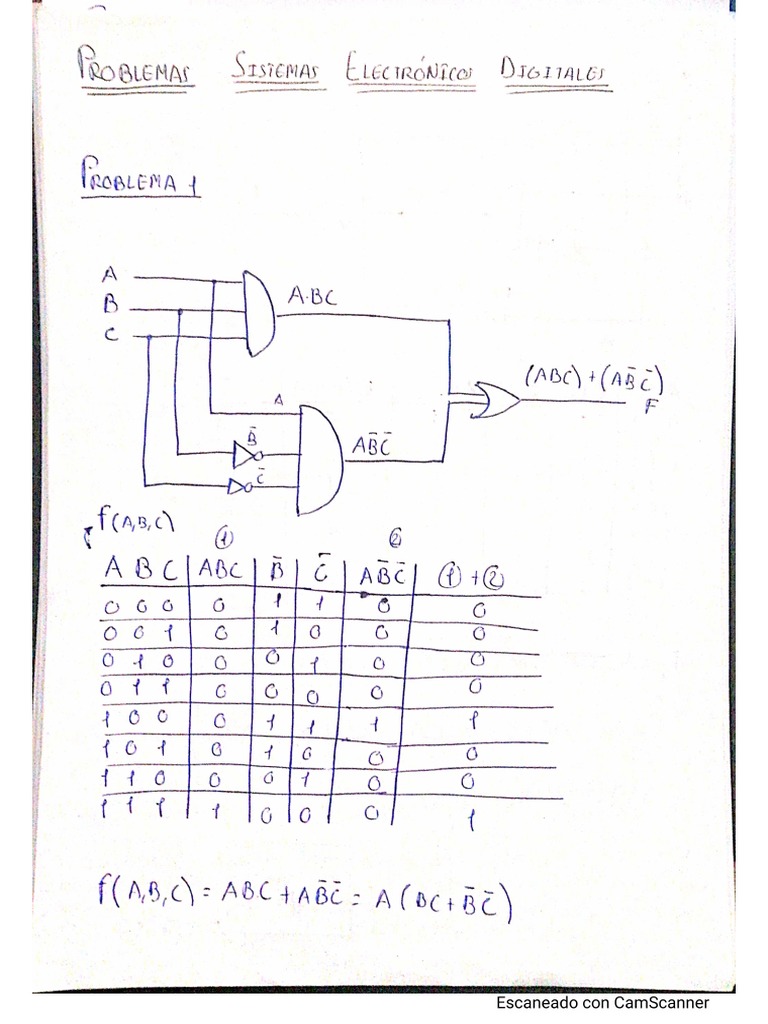 PROBLEMAS SISTEMAS ELECTRÓNICOS DIGITALES
PROBLEMA 1
A
B
C
A·BC
A
B̄
C̄
AB̄C̄
(ABC)+(AB̄C̄)
F
f(A,B,C)
① ②
A B C | ABC | B̄ | C̄ | AB̄C̄ | ①+②
0 0 0 | 0 | 1 | 1 | 0 | 0
0 0 1 | 0 | 1 | 0 | 0 | 0
0 1 0 | 0 | 0 | 1 | 0 | 0
0 1 1 | 0 | 0 | 0 | 0 | 0
1 0 0 | 0 | 1 | 1 | 1 | 1
1 0 1 | 0 | 1 | 0 | 0 | 0
1 1 0 | 0 | 0 | 1 | 0 | 0
1 1 1 | 1 | 0 | 0 | 0 | 1
f(A,B,C) = ABC + AB̄C̄ = A(BC + B̄C̄)
Escaneado con CamScanner